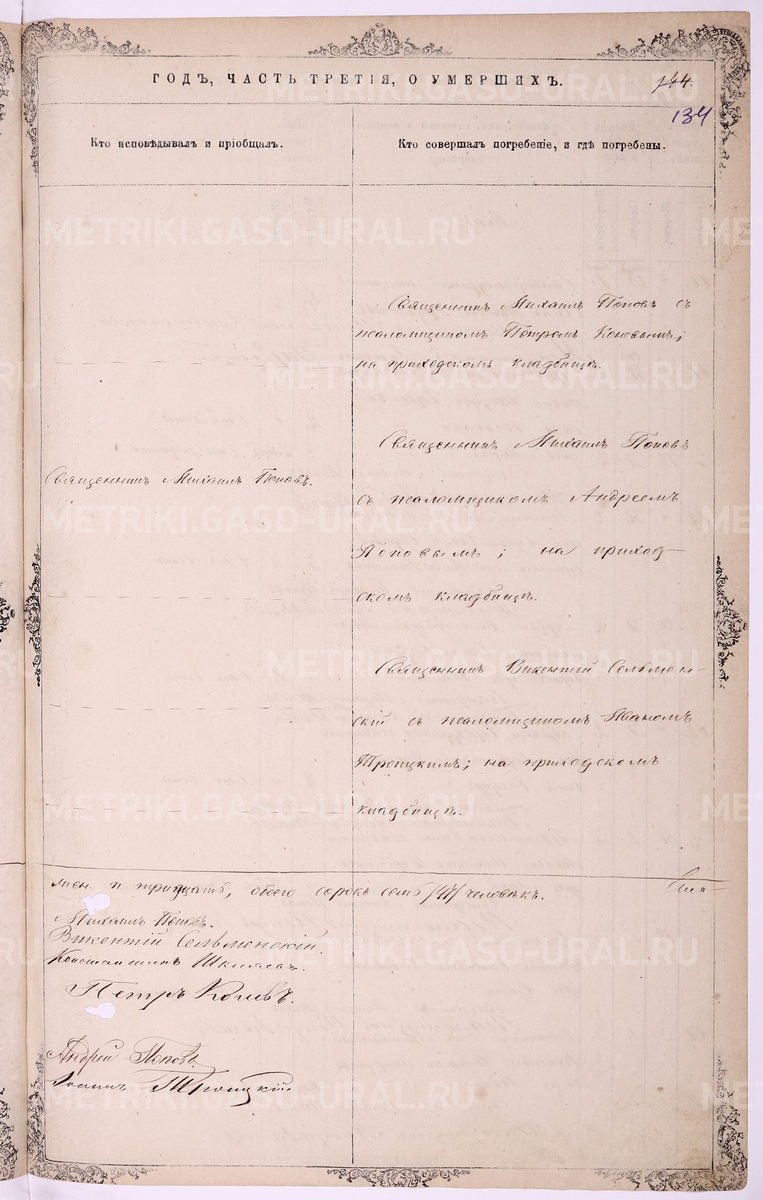 ГОДЪ, ЧАСТЬ ТРЕТІЯ, О УМЕРШИХЪ.
144.
134
Кто исповѣдывалъ и пріобщалъ.
Кто совершалъ погребеніе, и гдѣ погребены.
Священникъ Михаилъ Поповъ.
Священникъ Михаилъ Поповъ съ
псаломщикомъ Петромъ
на приходскомъ кладбищѣ.
Священникъ Михаилъ Поповъ
съ псаломщикомъ Андреемъ
Поповымъ; на приход-
скомъ кладбищѣ.
Священникъ Викентій Сельмен-
скій съ псаломщикомъ Иваномъ
Троицкимъ; на приходскомъ
кладбищѣ.
и тридцать, обоего сорокъ семь /47/ человѣкъ.
Михаилъ Поповъ.
Викентій Сельменскій.
Константинъ
Петръ
Андрей Поповъ
Іоаннъ Троицкій
METRIKI.GASO-URAL.RU